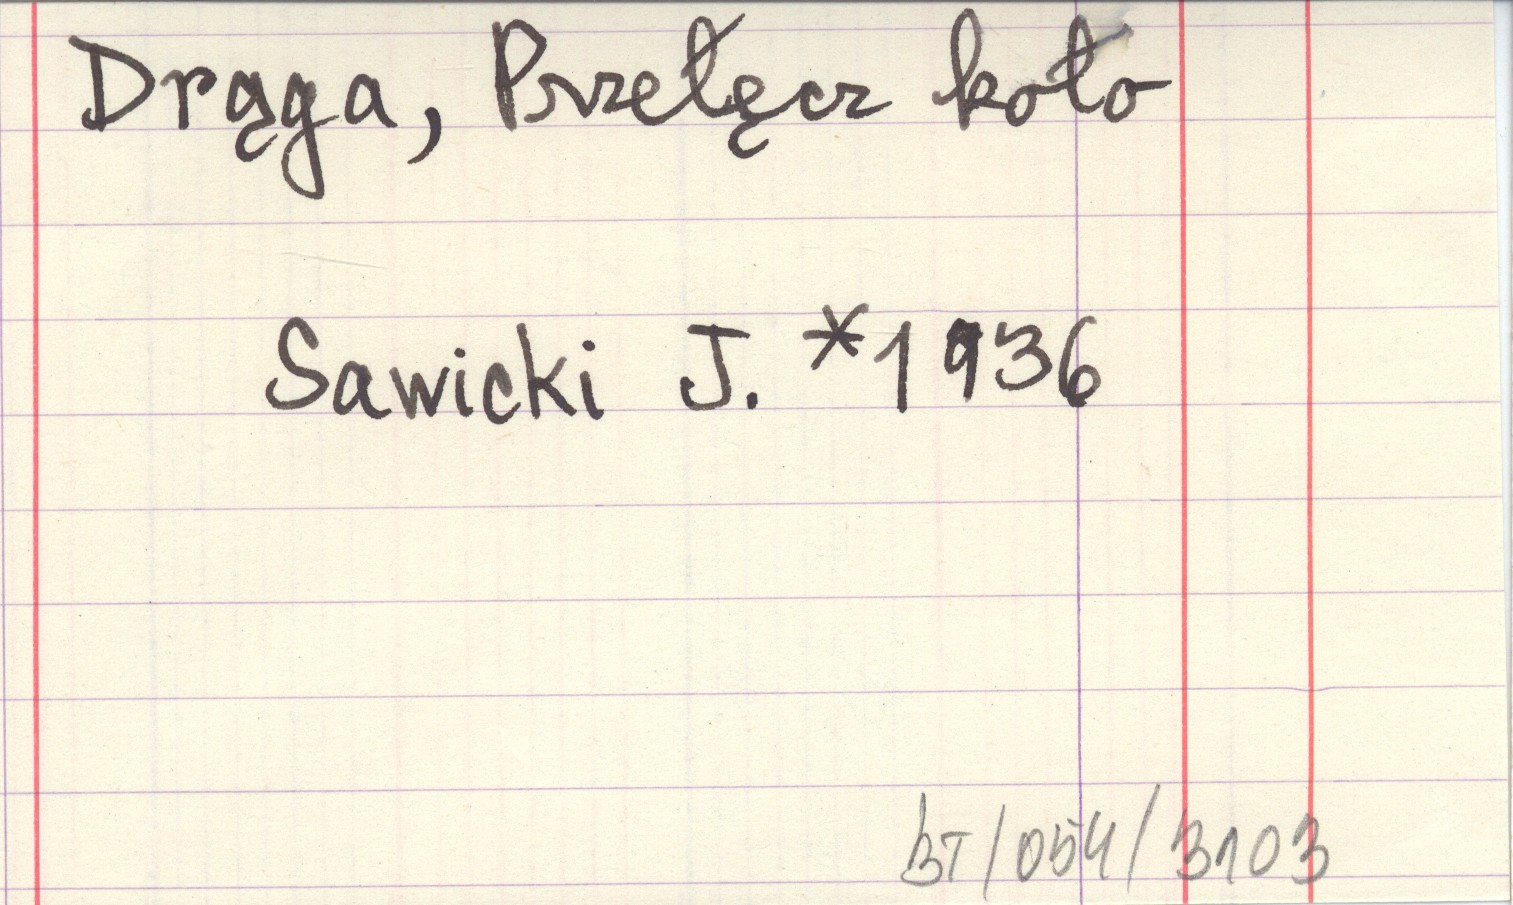 Drąga, Przełęcz koło
Sawicki J. *1936
BT/054/3103